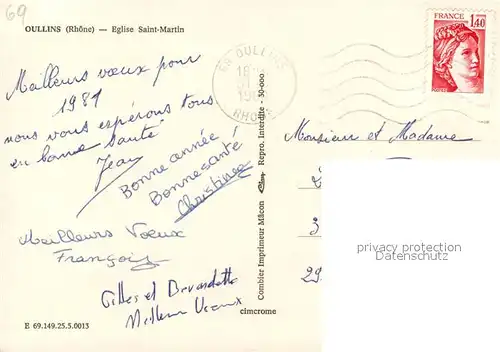 69
OULLINS (Rhône) — Eglise Saint-Martin
FRANCE
1,40
POSTES
69 OULLINS
RHONE
Meilleurs vœux pour
1981
nous vous espérons tous
en bonne santé
Jean
Bonne année !
Bonne santé
Christine
Meilleurs Vœux
François
Gilles et Bernadette
Meilleurs Vœux
Combier Imprimeur Mâcon
Repro. Interdite - 30-000
cimcrome
Monsieur et Madame
3
29
privacy protection
E 69.149.25.5.0013